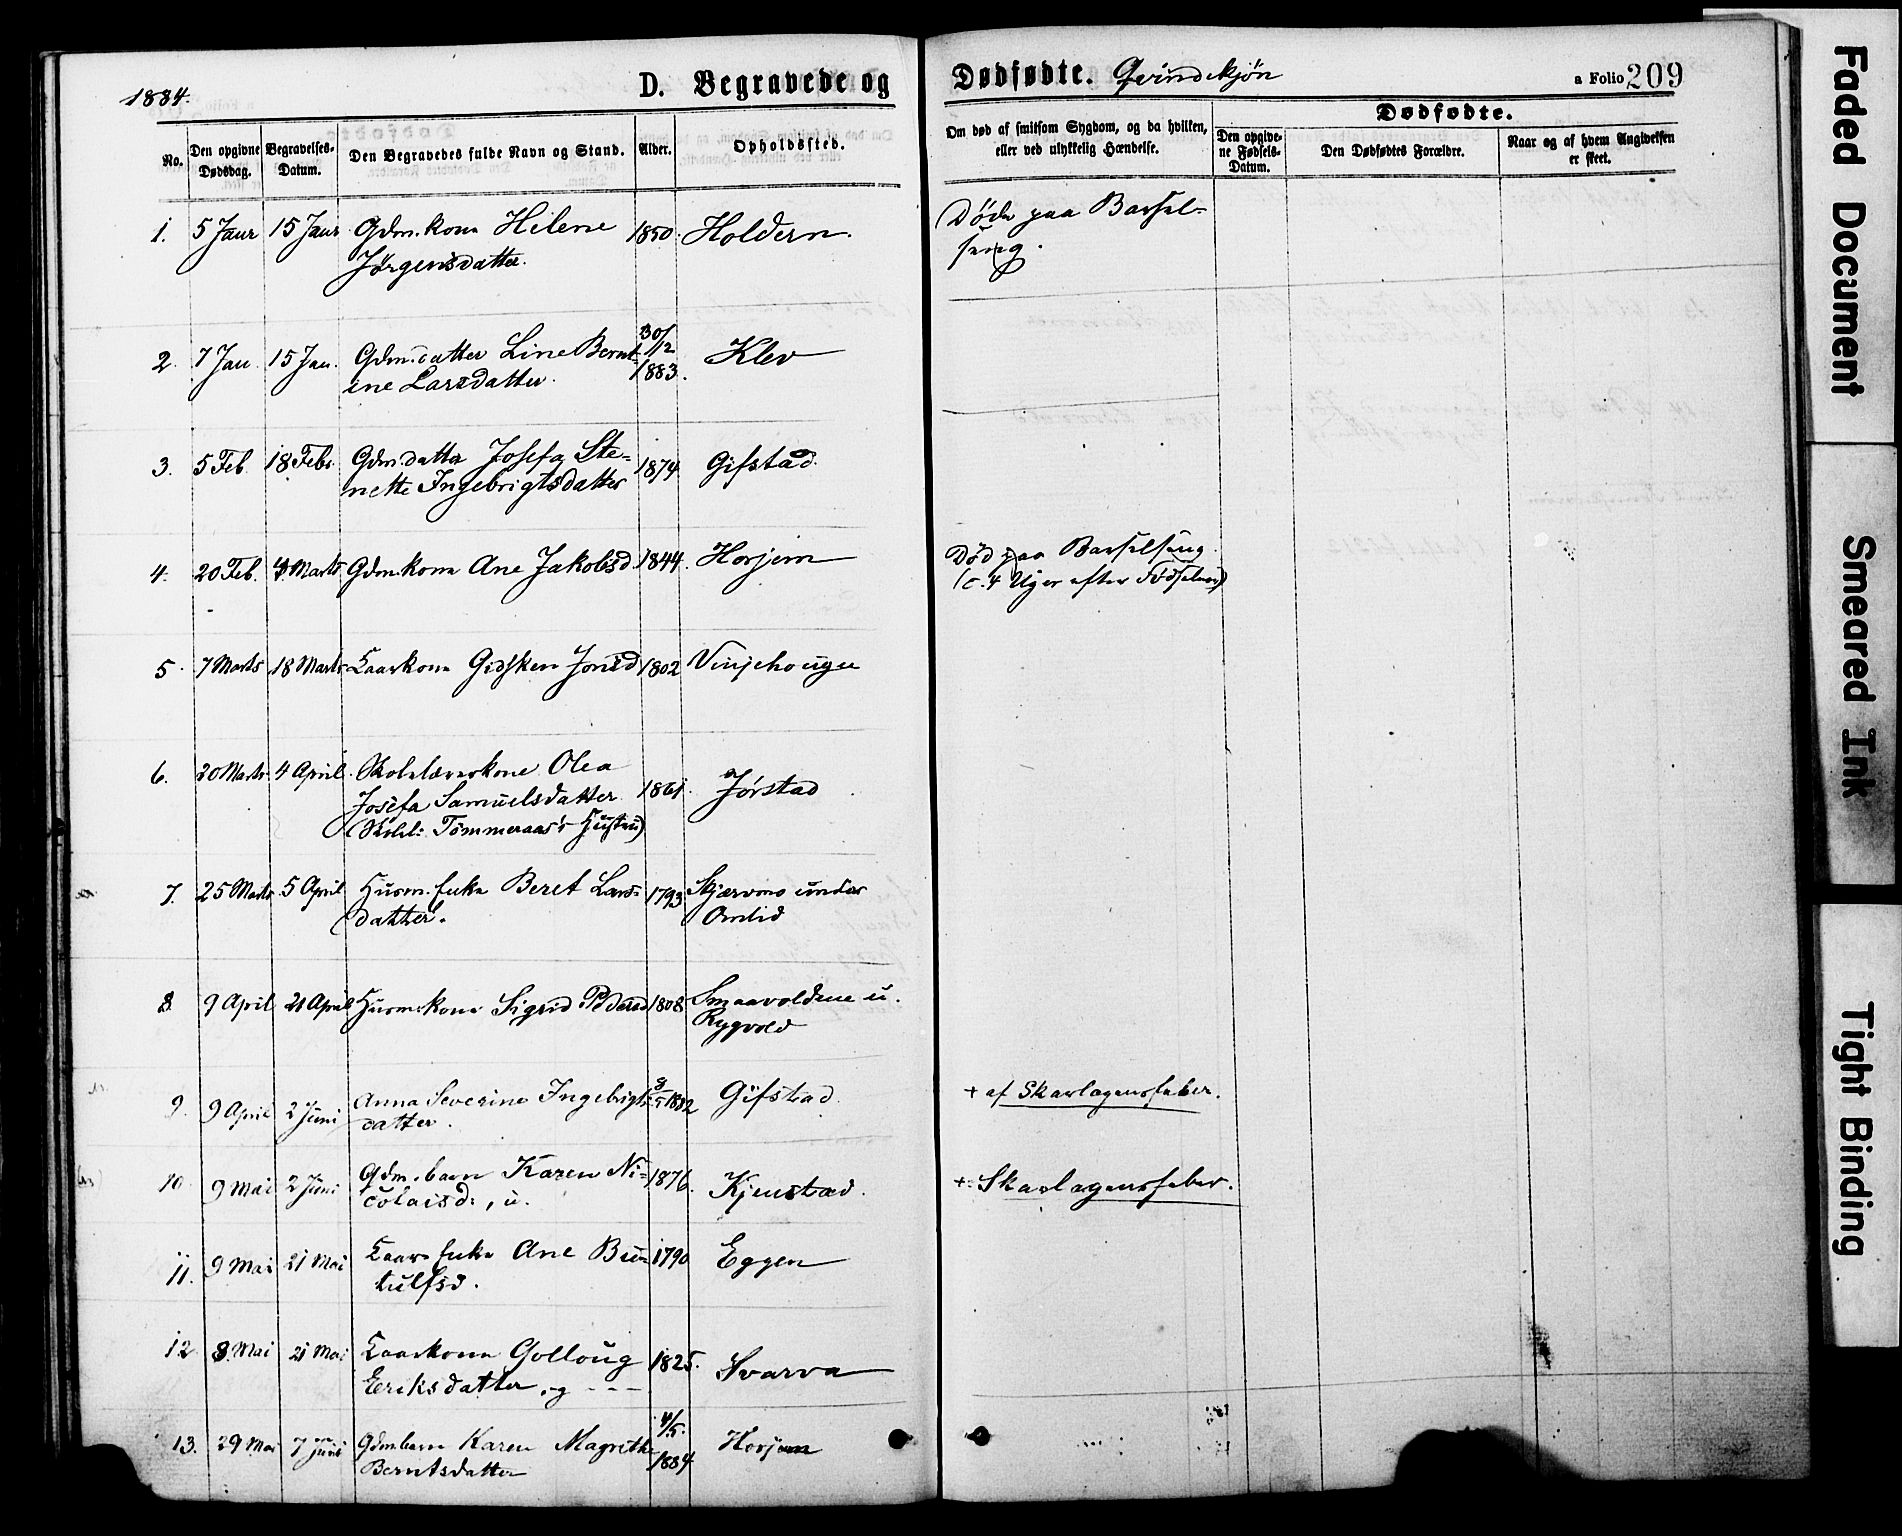 1884.
D. Begravede og Dødfødte. Qvindekjøn
a Folio 209
No.
Den opgivne Dødsdag.
Begravelses-Datum.
Den Begravedes fulde Navn og Stand.
Alder.
Opholdssted.
Om død af smitsom Sygdom, og da hvilken, eller ved ulykkelig Hændelse.
Dødfødte.
Den opgivne Fødsels-Datum.
Den Dødfødtes Forældre.
Naar og af hvem Angivelsen er skeet.
1. 5 Janr 15 Janr Gdm.kone Helene 1850. Holdern. Døde paa Barsel-
Jørgensdatter. seng.
2. 7 Jan. 15 Jan. Gdm.datter Line Bernt- 30/12 1883. Klev
ine Larsdatter.
3. 5 Feb. 18 Febr. Gdm.datter Josefa Ste- 1874. Gifstad.
nette Ingebrigtsdatter
4. 20 Feb. Marts Gdm.kone Ane Jakobsd. 1844. Horjem Død paa Barselseng.
(c. 4 Uger efter Fødselen)
5. 7 Marts 18 Marts Kaarkone Gidsken Jonsd 1802 Vinjehougen
6. 20 Marts 4 April. Skolelærerkone Olea 1861. Jørstad
Josefa Samuelsdatter
(Skolel: Tømmeraas's Hustru)
7. 25 Marts 5 April Husm.enke Beret Lars- 1793 Skjærvmo under
datter. Omlid
8 9 April 21 April Husm.kone Sigrid Pedersd 1808 Smaavoldene u.
Rygvold
9. 9 April 2 Juni Anna Severine Ingebrigts- 8/5 1882 Gifstad + af Skarlagensfeber.
datter.
10 9 Mai 2 Juni Gdm.barn Karen Ni- 1876. Kjenstad. + Skarlagensfeber.
colaisd:, u.
11. 9 Mai 21 Mai Kaarenke Ane Bun- 1790 Eggen
tulfsd.
12 8. Mai 21 Mai Kaarkone Golloug 1825. Svarva
Eriksdatter, g - - -
13. 29 Mai 7 Juni Gdmbarn Karen Magrethe 4/5. 1884 Horjem
Berntsdatter
Faded Document
Smeared Ink
Tight Binding